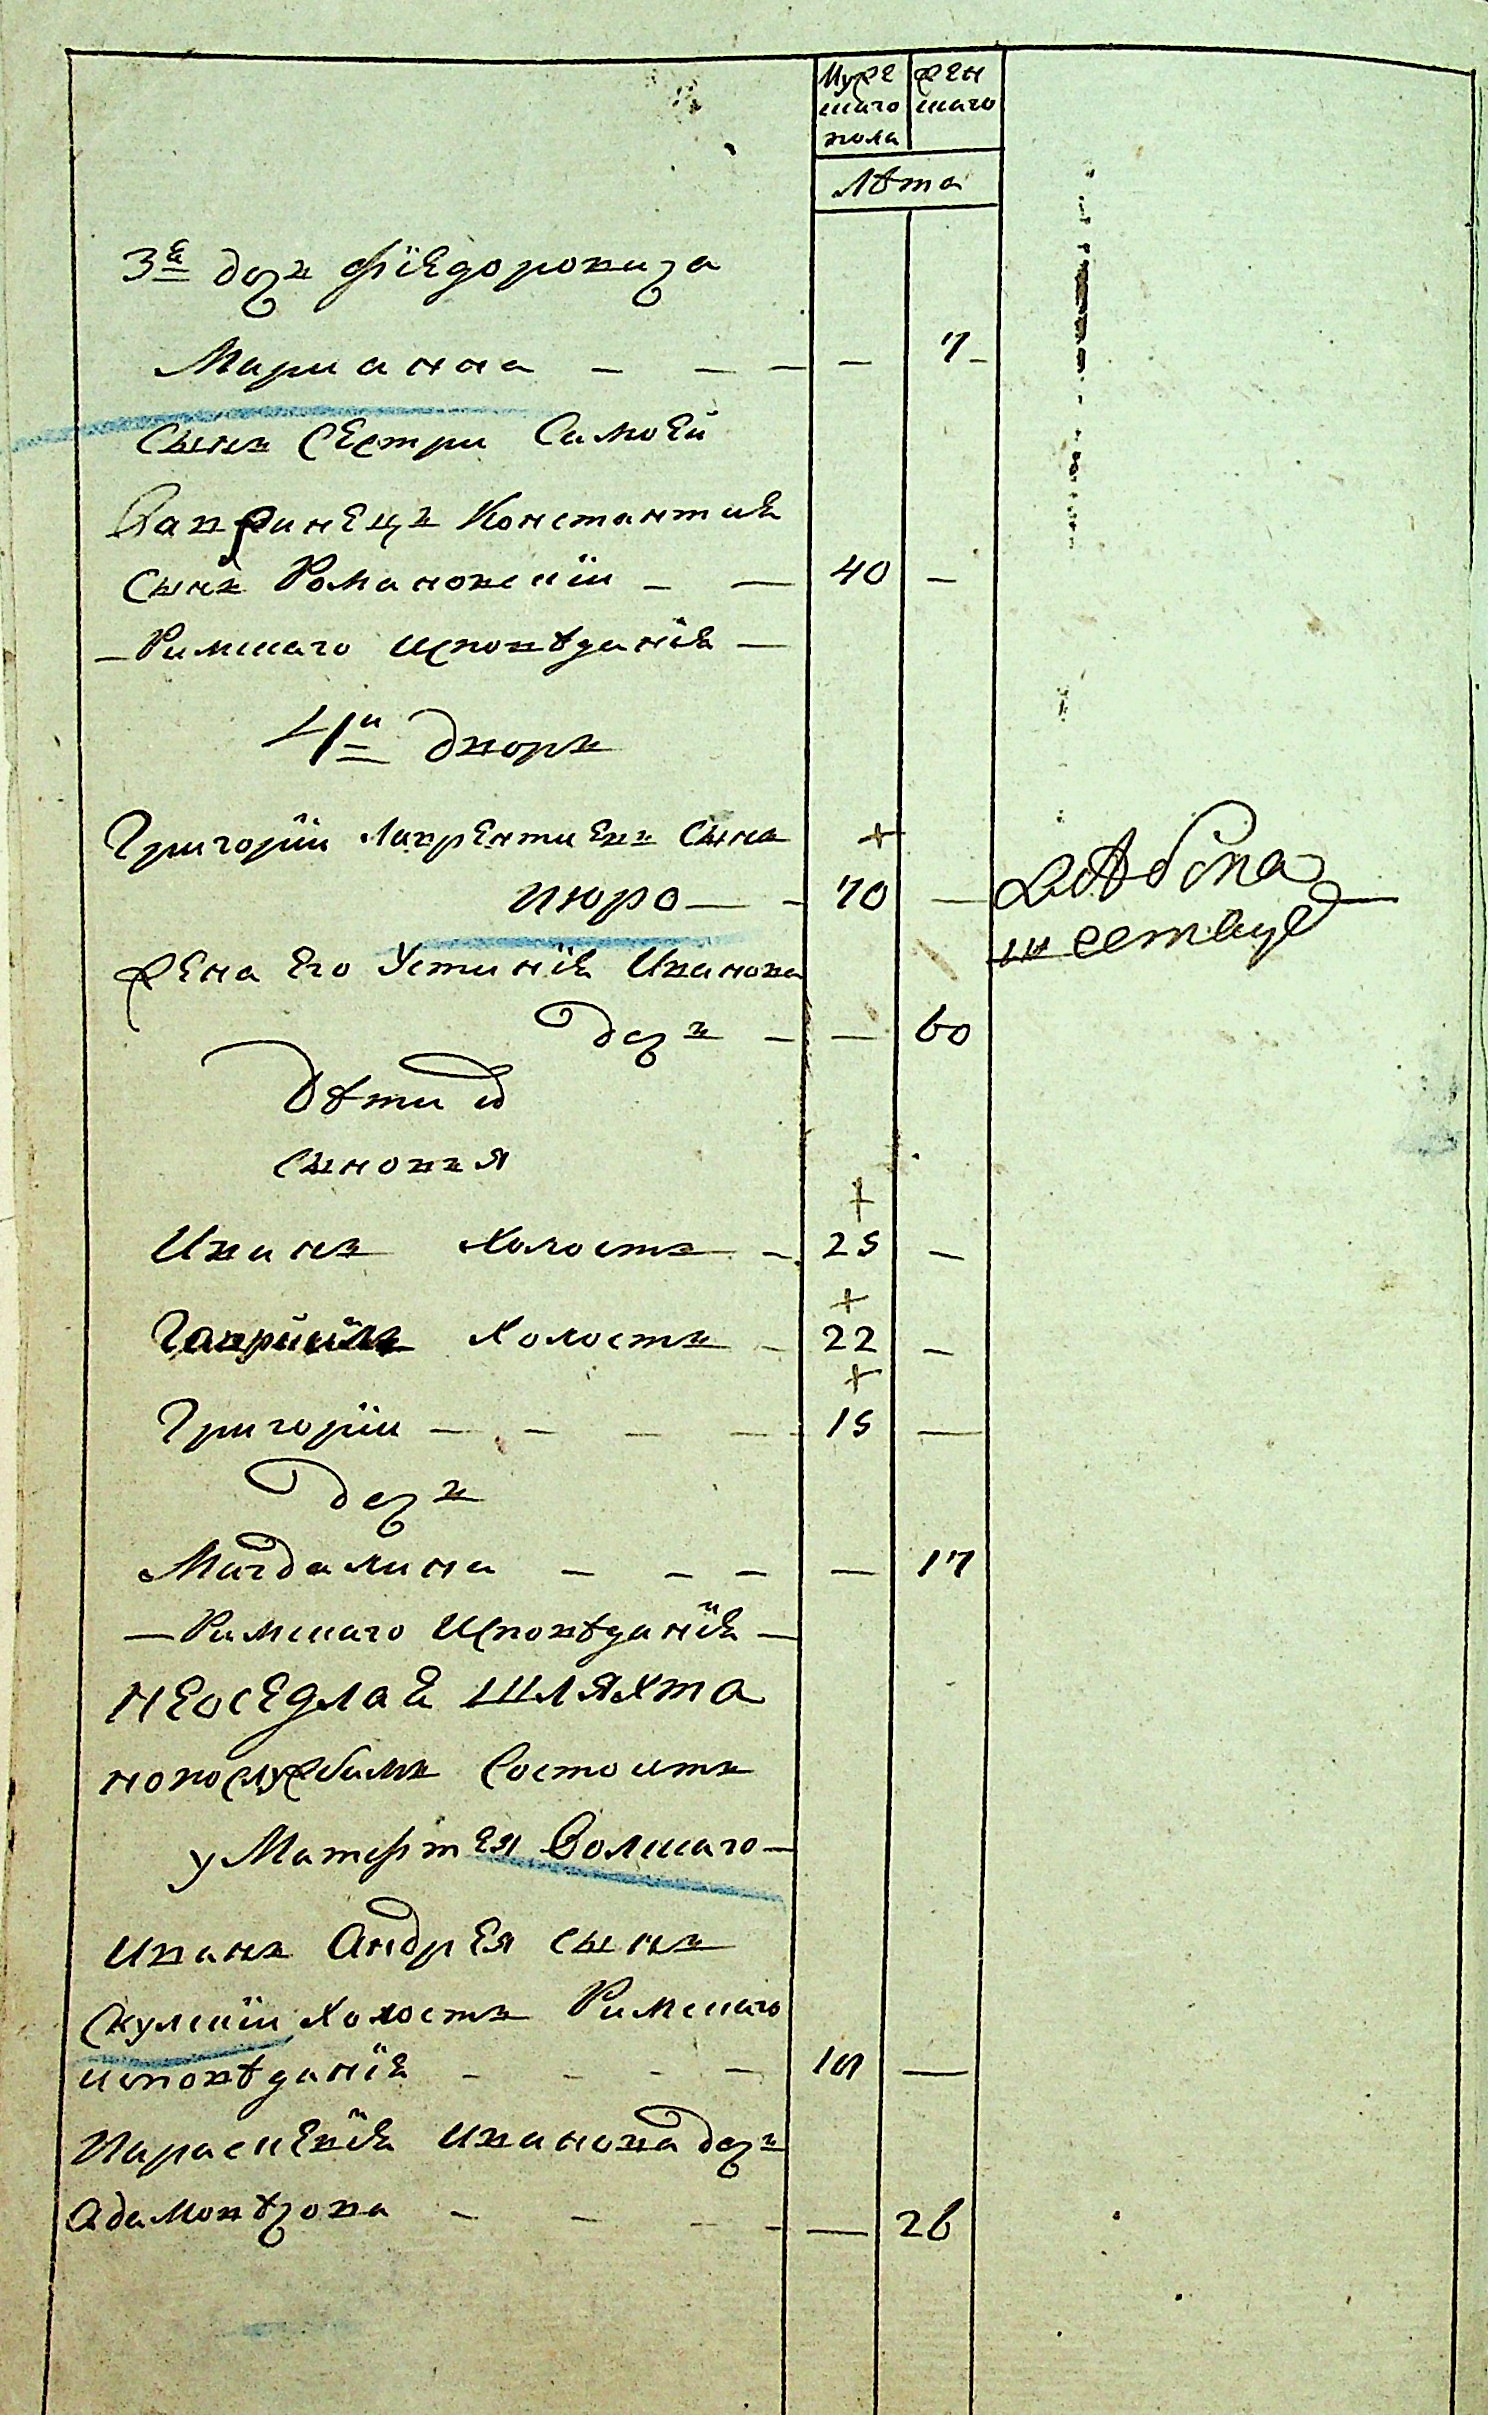 Муже женскаго
скаго
пола
Лѣта
3е дочь Фіедоровича
Марианна — — — — 7 —
Сынъ сестри Самоей
Вавржинецъ Константиѣ
сынъ Романовскіи — — 40 —
— Римскаго исповѣданіѣ —
4и дворъ
Григоріи Лаврентиевъ сына +
Пюро — — 70 —
жена его Устиніѣ Иванова
дочь — — 60
Дѣти их
сыновья
+
Иванъ холостъ — 25 —
+
Гавріилъ холостъ — 22 —
+
Григоріи — — — — 15 —
дочь
Магдалина — — — — 17
— Римскаго исповѣданіѣ —
неоседлаѣ шляхта
новослужбамъ состоитъ
у Матфтея Волскаго —
Иванъ Андрея сынъ
Скулскіи холостъ Римскаго
исповѣданіѣ — — — — —
Параскевіѣ Иванова дочь
Адамовѣчова — — — — — 26